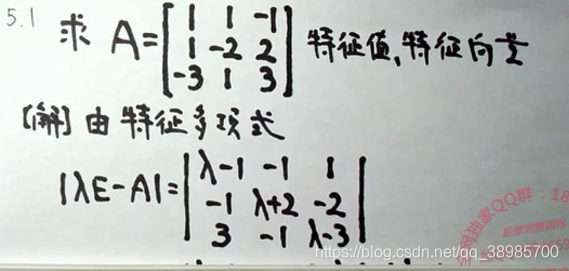 5.1 求 A=[1 1 -1; 1 -2 2; -3 1 3] 特征值,特征向量
[解] 由特征多项式
|λE-A|=|λ-1 -1 1; -1 λ+2 -2; 3 -1 λ-3|
独家QQ群:18
后续完整课程
https://blog.csdn.net/qq_38985700